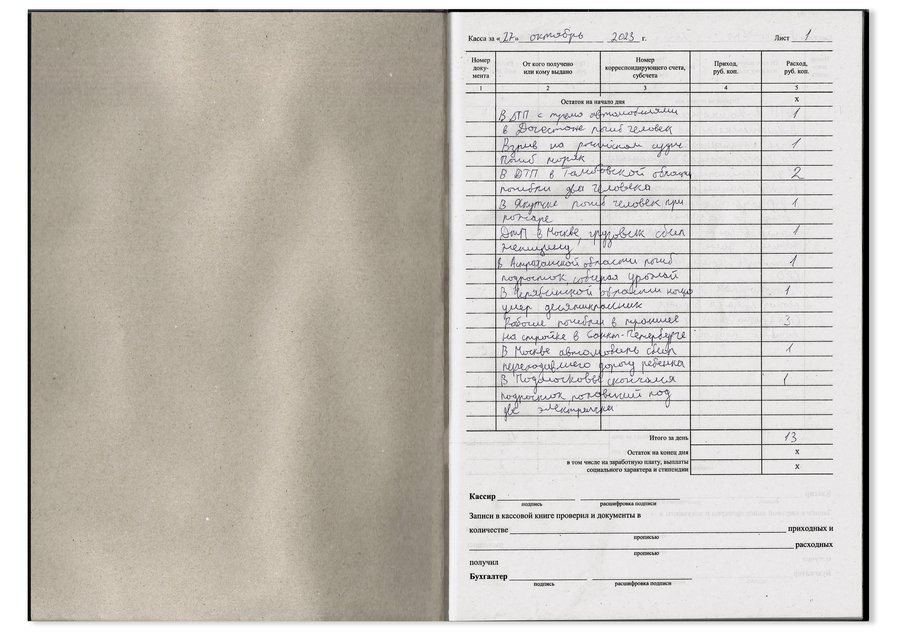 Касса за «27» октябрь 2023 г. Лист 1
Номер документа От кого получено или кому выдано Номер корреспондирующего счета, субсчета Приход, руб. коп. Расход, руб. коп.
1 2 3 4 5
Остаток на начало дня х
В ДТП с тремя автомобилями 1
в Дагестане погиб человек
Взрыв на российском судне 1
Погиб моряк
В ДТП в Тамбовской области 2
погибли два человека
В Якутске погиб человек при 1
пожаре
ДТП в Москве, грузовик сбил 1
женщину
В Астраханской области погиб 1
подросток, собирая урожай
В Челябинской области 1
умер десятиклассник
Рабочие погибли в траншее 3
на стройке в Санкт-Петербурге
В Москве автомобиль сбил 1
переходившего дорогу ребенка
В Подмосковье скончался 1
подросток, попавший под
две электрички
Итого за день 13
Остаток на конец дня х
в том числе на заработную плату, выплаты социального характера и стипендии х
Кассир
подпись расшифровка подписи
Записи в кассовой книге проверил и документы в
количестве приходных и
прописью
расходных
прописью
получил
Бухгалтер
подпись расшифровка подписи